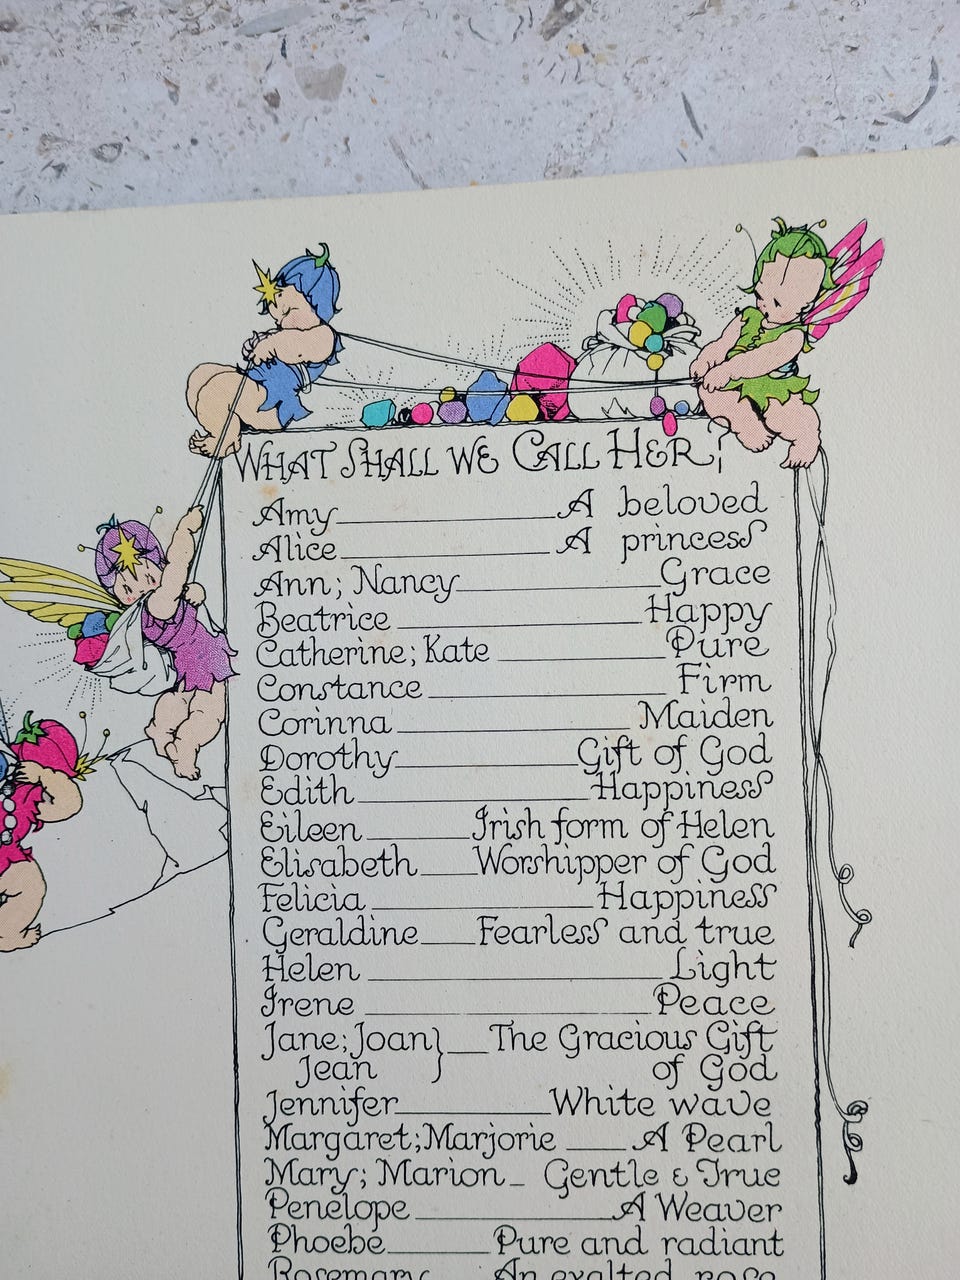 WHAT SHALL WE CALL HER?
Amy A beloved
Alice A princess
Ann; Nancy Grace
Beatrice Happy
Catherine; Kate Pure
Constance Firm
Corinna Maiden
Dorothy Gift of God
Edith Happiness
Eileen Irish form of Helen
Elisabeth Worshipper of God
Felicia Happiness
Geraldine Fearless and true
Helen Light
Irene Peace
Jane; Joan} The Gracious Gift
Jean } of God
Jennifer White wave
Margaret; Marjorie A Pearl
Mary; Marion Gentle & True
Penelope A Weaver
Phoebe Pure and radiant
Rosemary An exalted rose